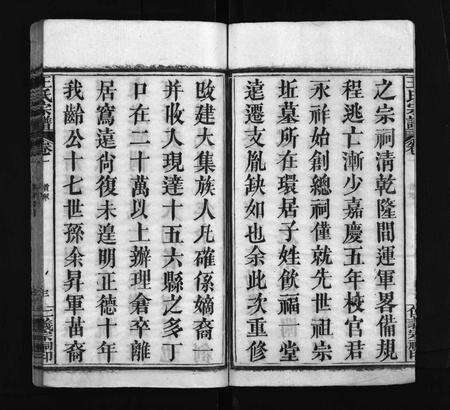 王氏宗譜
之宗祠清乾隆間運軍畧備規
程逃亡漸少嘉慶五年校官君
永祥始創總祠僅就先世祖宗
坵墓所在環居子姓飲福一堂
遠遷支胤缺如也余此次重修
敀建大集族人凡確係嫡裔
并收入現達十五六縣之多丁
口在二十萬以上辦理倉卒離
居窵遠尙復未遑明正德十年
我齡公十七世孫余昇軍苗裔
王氏宗譜 卷